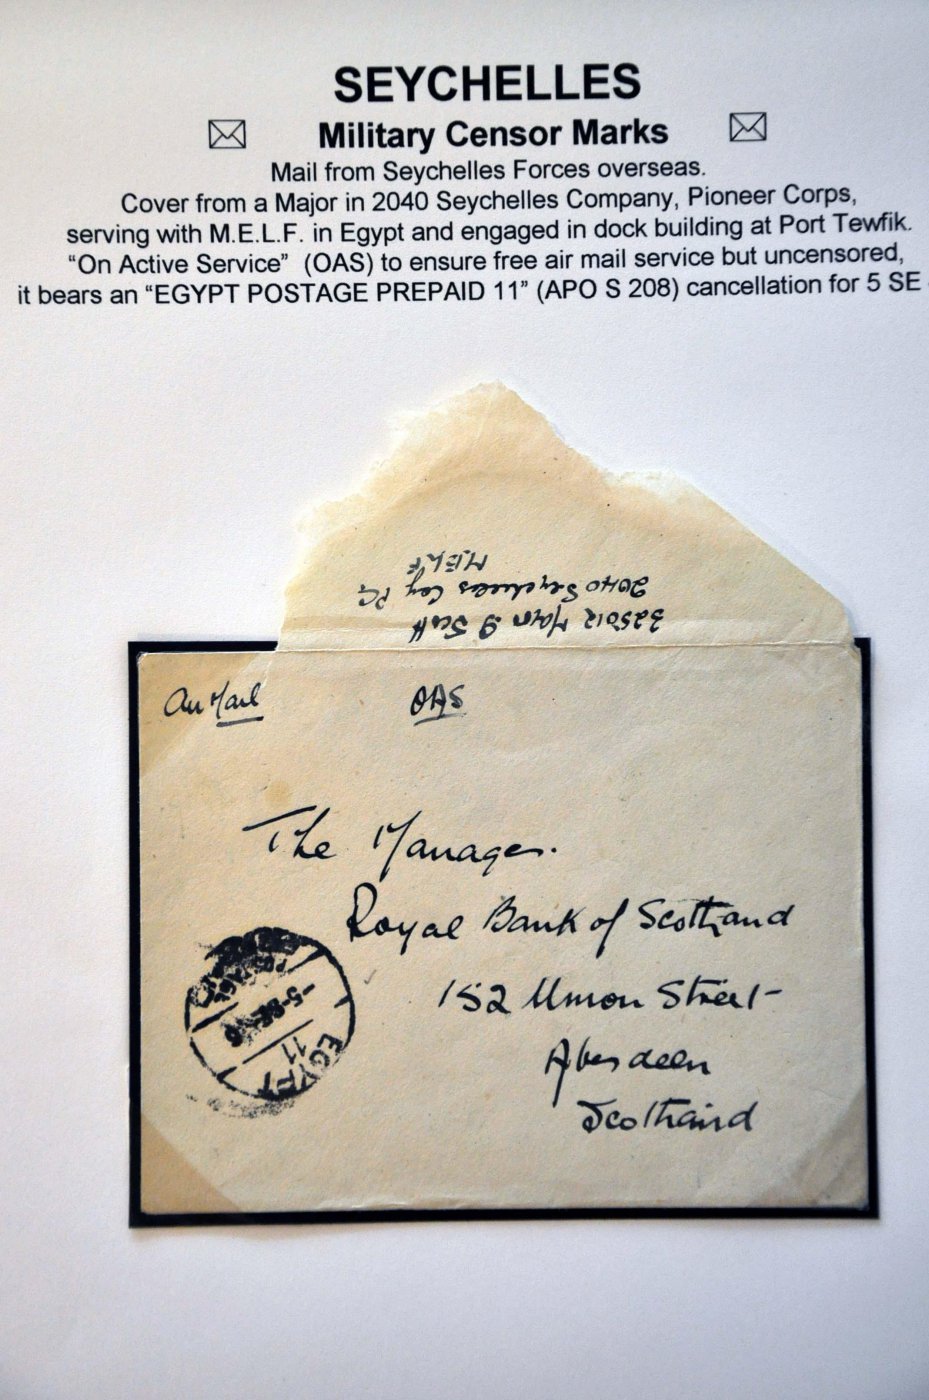 SEYCHELLES
Military Censor Marks
Mail from Seychelles Forces overseas.
Cover from a Major in 2040 Seychelles Company, Pioneer Corps,
serving with M.E.L.F. in Egypt and engaged in dock building at Port Tewfik.
“On Active Service” (OAS) to ensure free air mail service but uncensored,
it bears an “EGYPT POSTAGE PREPAID 11” (APO S 208) cancellation for 5 SE
325012 Major J Scott
2040 Seychelles Coy PC
M.E.L.F
Air Mail OAS
The Manager.
Royal Bank of Scotland
152 Union Street
Aberdeen
Scotland
POSTAGE
-5 SE
11
EGYPT